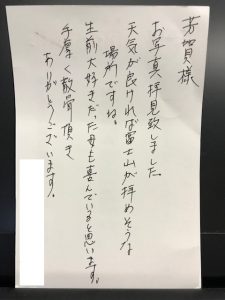 芳賀様
お写真拝見致しました。
天気が良ければ富士山が拝めそうな
場所ですね。
生前大好きだった母も喜んでいると思います。
手厚く散骨頂き
ありがとうございます。